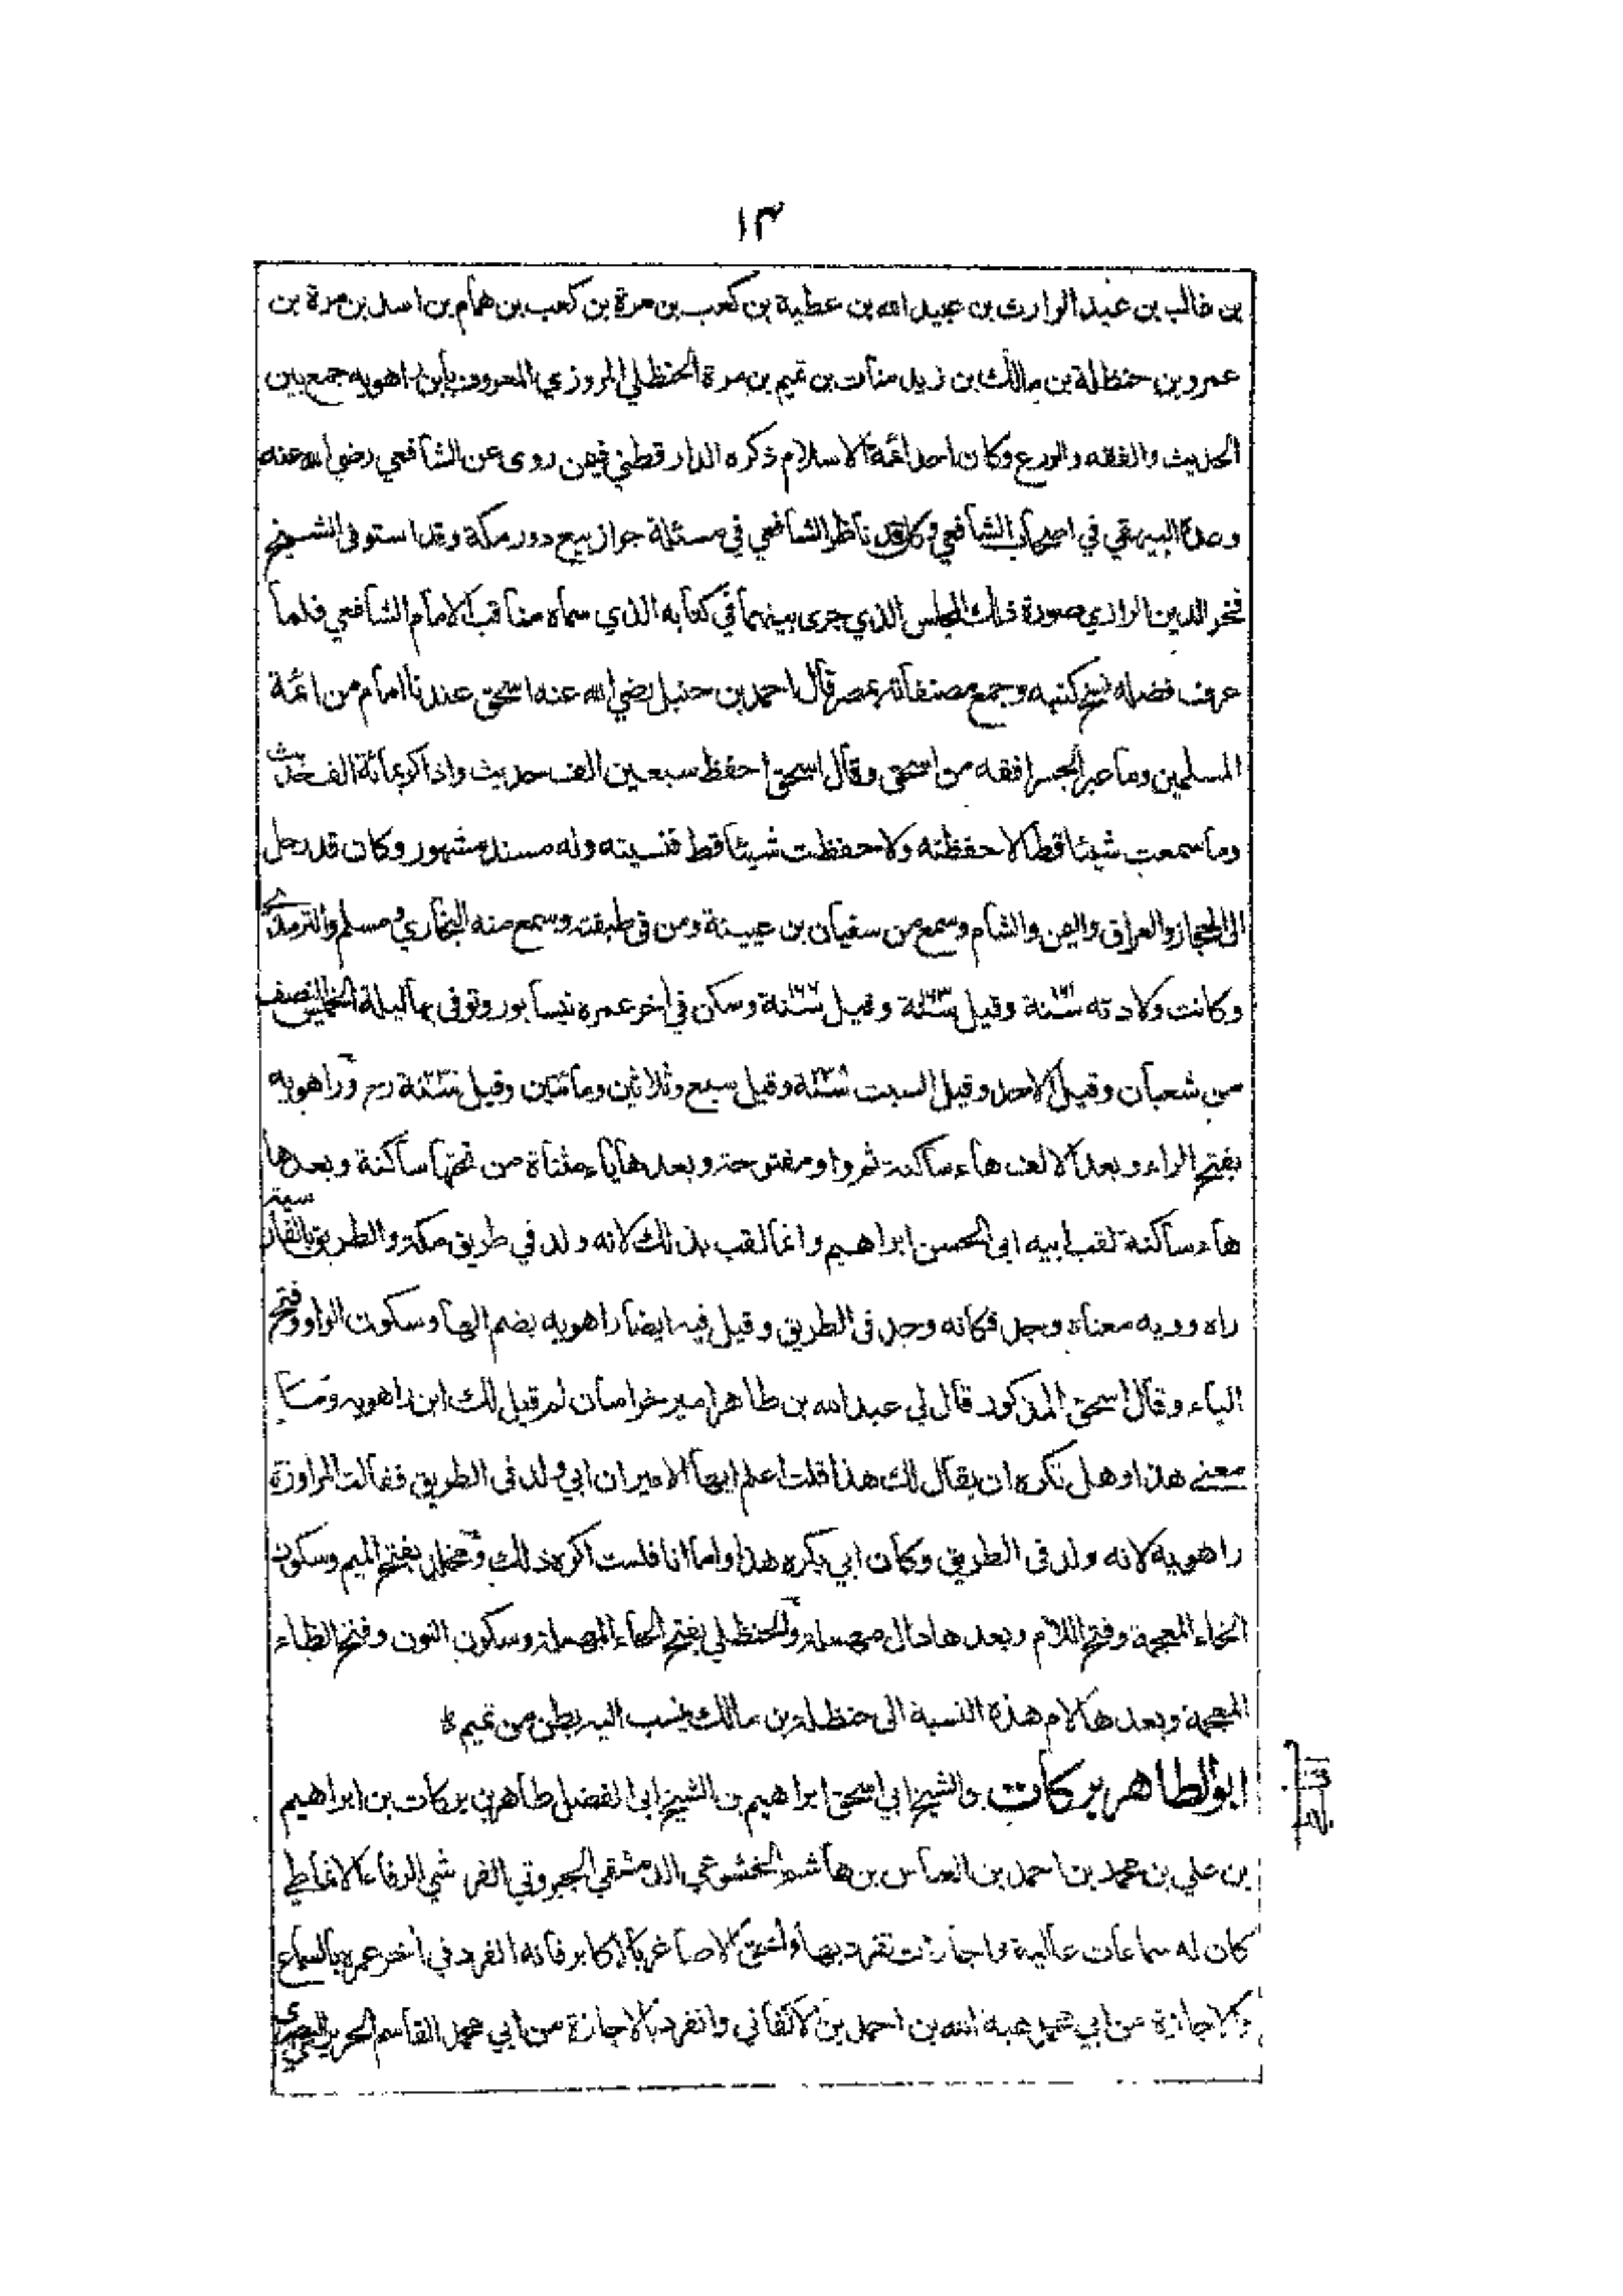 ١٣
بن غالب بن عبد الوارث بن عبيد الله بن عطية بن كعب بن مرة بن كعب بن همام بن اسد بن مرة بن
عمرو بن حنظلة بن مالك بن زيد منات بن تميم بن مرة الحنظلي المروزي المعروف بابن راهويه جمع بين
الحديث والفقه والورع وكان احد ائمة الاسلام ذكره الدارقطني فيمن روى عن الشافعي رضي الله عنه
وعده البيهقي في اصحاب الشافعي وكان قد ناظر الشافعي في مسئلة جواز بيع دور مكة وقد استوفى الشيخ
فخر الدين الرازي صورة ذلك المجلس الذي جرى بينهما في كتابه الذي سماه مناقب الامام الشافعي فلما
عرف فضله نسخ كتبه وجمع مصنفاته بمصر قال احمد بن حنبل رضي الله عنه اسحق عندنا امام من ائمة
المسلمين وما عبر الجسر افقه من اسحق وقال اسحق احفظ سبعين الف حديث واذاكر بمائة الف حديث
وما سمعت شيئا قط الا حفظته ولا حفظت شيئا قط فنسيته وله مسند مشهور وكان قد رحل
الى الحجاز والعراق واليمن والشام وسمع من سفيان بن عيينة ومن في طبقته وسمع منه البخاري ومسلم والترمذي
وكانت ولادته سنة ١٦١ وقيل سنة ١٦٣ وقيل سنة ١٦٦ وسكن في اخر عمره نيسابور وتوفى بها ليلة الخميس النصف
من شعبان وقيل الاحد وقيل السبت سنة ٢٣٨ وقيل سبع وثلاثين ومائتين وقيل سنة ٢٣٠ رح وراهويه
بفتح الراء وبعد الالف هاء ساكنة ثم واو مفتوحة وبعدها ياء مثناة من تحتها ساكنة وبعدها
هاء ساكنة لقب ابيه ابى الحسن ابراهيم وانما لقب بذلك لانه ولد في طريق مكة والطريق بالفارسية
راه وويه معناه وجد فكانه وجد فى الطريق وقيل فيه ايضا راهويه بضم الها وسكون الواو وفتح
الياء وقال اسحق المذكور قال لي عبد الله بن طاهر امير خراسان لم قيل لك ابن راهويه وما
معنى هذا وهل تكره ان يقال لك هذا قلت اعلم ايها الامير ان ابي ولد فى الطريق فقالت المراوزة
راهويه لانه ولد فى الطريق وكان ابي يكره هذا واما انا فلست اكره ذلك ومخلد بفتح الميم وسكون
الخاء المعجمة وفتح اللام وبعدها دال مهملة والحنظلي بفتح الحاء المهملة وسكون النون وفتح الظاء
المعجمة وبعدها لام هذه النسبة الى حنظلة بن مالك ينسب اليه بطن من تميم
ابو الطاهر بركات بن الشيخ ابي اسحق ابراهيم بن الشيخ ابى الفضل طاهر بن بركات بن ابراهيم
بن علي بن محمد بن احمد بن العباس بن هاشم الخشوعي الدمشقي الجيروني الفرشي الرفاء الانماطي
كان له سماعات عالية واجازات تفرد بها والحق الاصاغر بالاكابر فانه انفرد في اخر عمره بالسماع
والاجازة من ابي محمد هبة الله بن احمد بن الاكفاني وانفرد بالاجازة من ابي محمد القاسم الحريري البصري